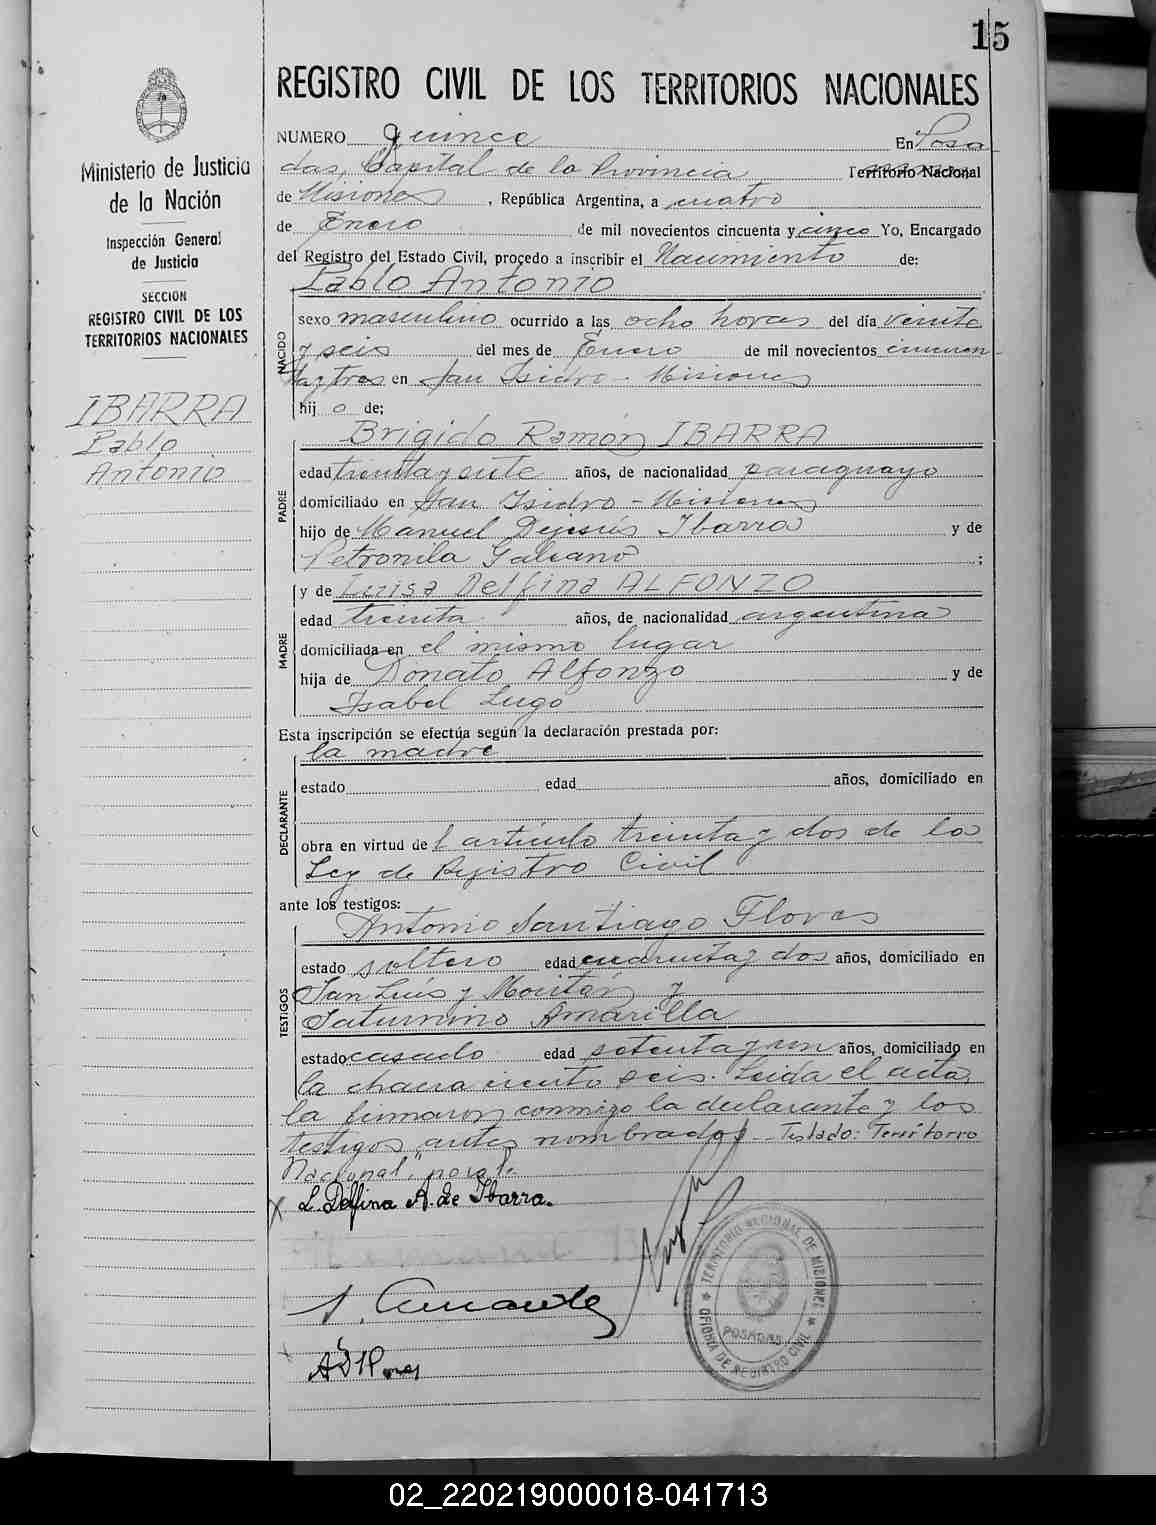 15
REGISTRO CIVIL DE LOS TERRITORIOS NACIONALES
Ministerio de Justicia
de la Nación
Inspección General
de Justicia
SECCION
REGISTRO CIVIL DE LOS
TERRITORIOS NACIONALES
IBARRA
Pablo
Antonio
NUMERO Quince En Posa
das, Capital de la Provincia Territorio Nacional
de Misiones, República Argentina, a cuatro
de Enero de mil novecientos cincuenta y cinco Yo, Encargado
del Registro del Estado Civil, procedo a inscribir el Nacimiento de:
NACIDO
Pablo Antonio
sexo masculino ocurrido a las ocho horas del día veinte
y seis del mes de Enero de mil novecientos cincuen
ta y tres en San Isidro - Misiones
hij o de;
PADRE
Brigido Ramón IBARRA
edad treinta y siete años, de nacionalidad paraguayo
domiciliado en San Isidro - Misiones
hijo de Manuel Dejesús Ibarra y de
Petronila Galeano ;
MADRE
y de Luisa Delfina ALFONZO
edad treinta años, de nacionalidad argentina
domiciliada en el mismo lugar
hija de Donato Alfonzo y de
Isabel Lugo
Esta inscripción se efectúa según la declaración prestada por:
DECLARANTE
la madre
estado edad años, domiciliado en
obra en virtud del artículo treinta y dos de la
Ley de Registro Civil
ante los testigos:
TESTIGOS
Antonio Santiago Flores
estado soltero edad cuarenta y dos años, domiciliado en
San Luis y Moritán y
Saturnino Amarilla
estado casado edad setenta y un años, domiciliado en
la chacra ciento seis. Leida el acta,
la firmaron conmigo la declarante y los
testigos antes nombrados - Testado: Territorio
Nacional, no vale.
X L. Delfina A. de Ibarra.
TERRITORIO NACIONAL DE MISIONES
POSADAS
OFICINA DE REGISTRO CIVIL
02_220219000018-041713